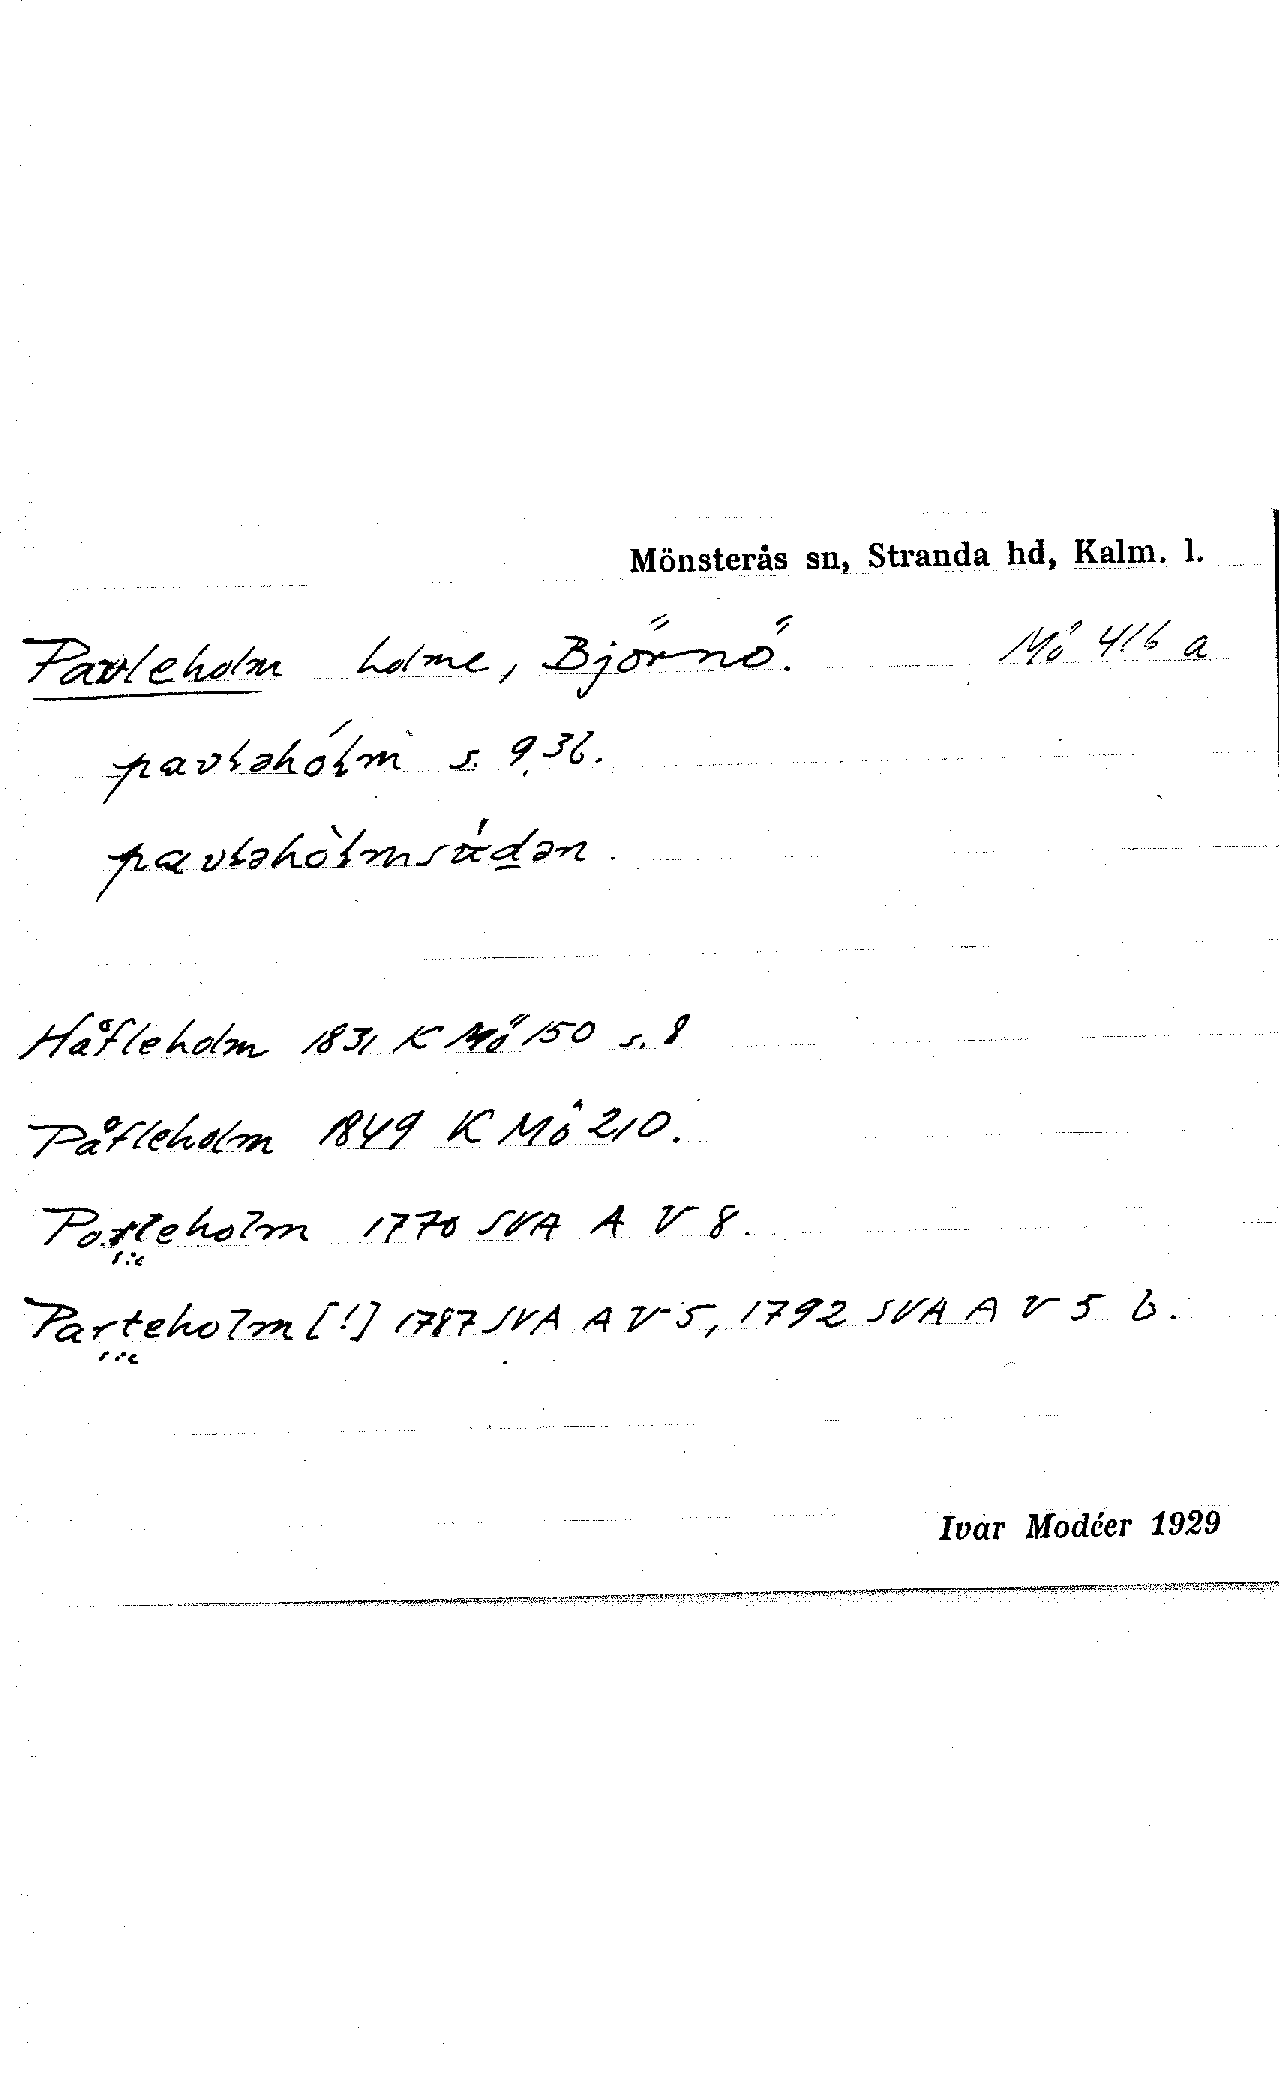 Mönsterås sn, Stranda hd, Kalm. l.
Pavleholm holme, Björnö. Mö 416 a
pavləhólm s. 9, 36.
pavləhòlmsúdən.
Håfleholm 1831 K Mö 150 s. 8
Påfleholm 1849 K Mö 210.
Posleholm 1770 SVA A V 8.
sic
Parteholm [!] 1787 SVA A V 5, 1792 SVA A V 5 b.
sic
Ivar Modéer 1929